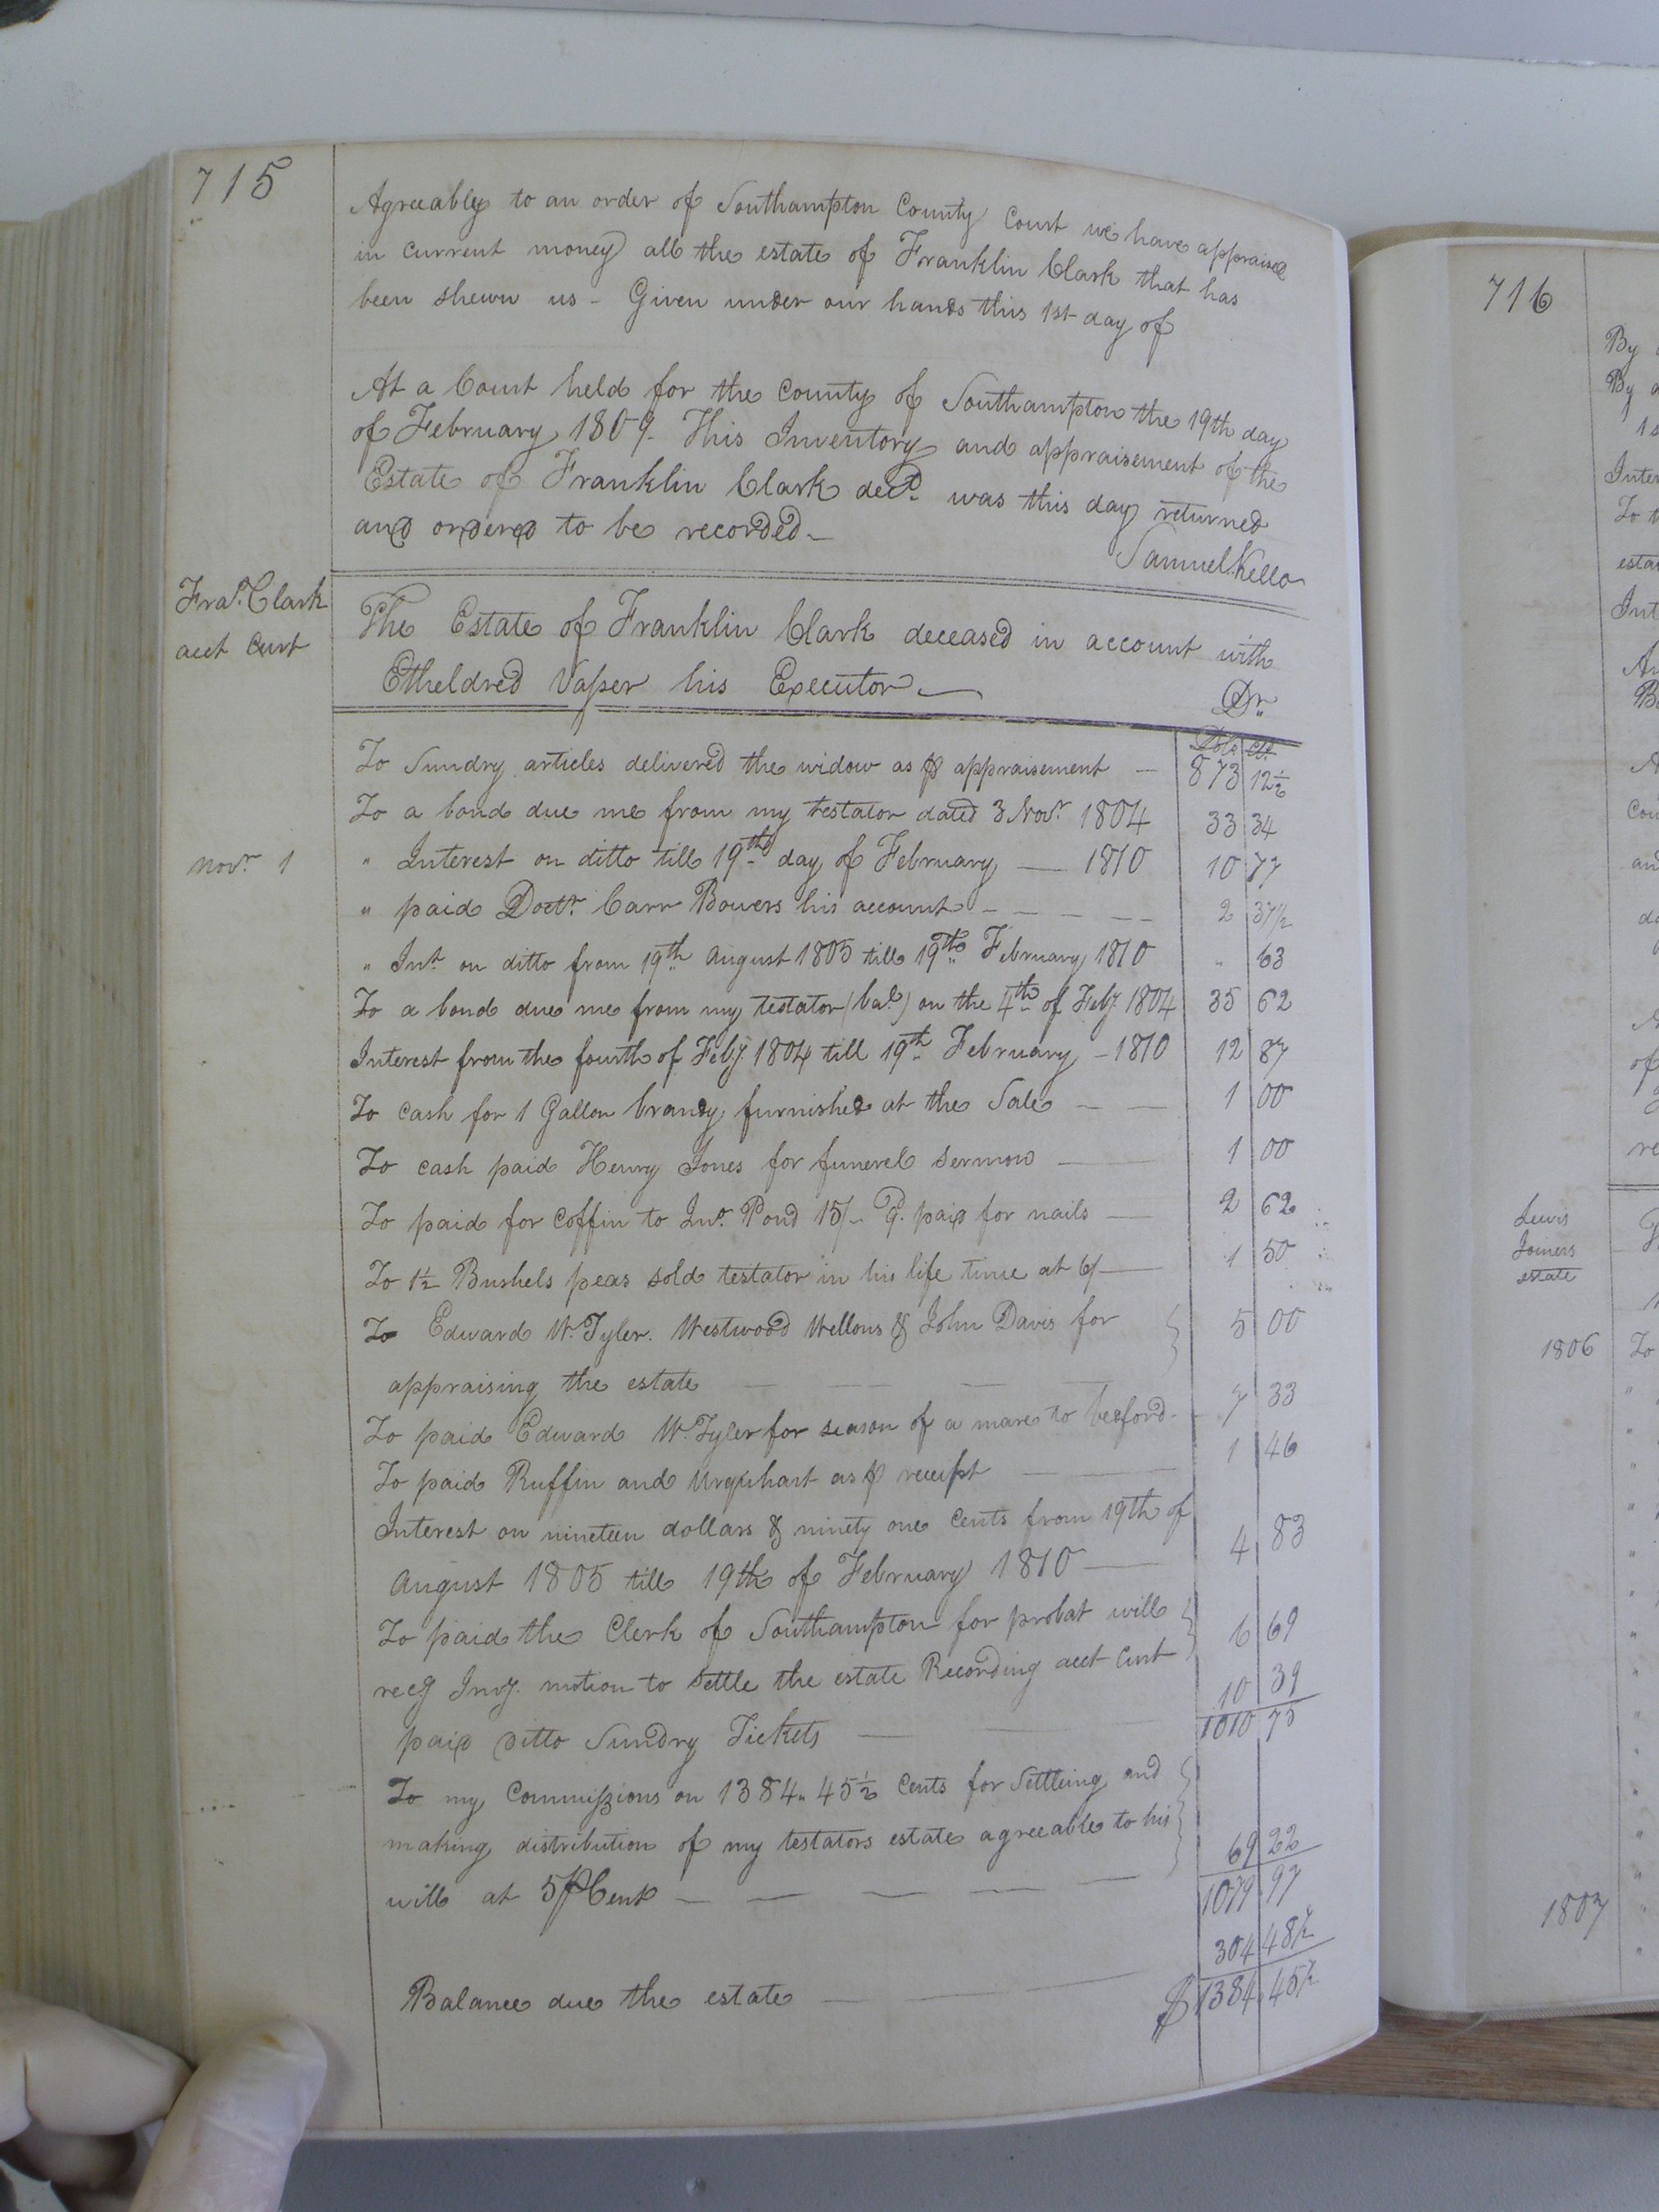 715
Agreeably to an order of Southampton County Court we have appraised
in current money all the estate of Franklin Clark that has
been shewn us - Given under our hands this 1st day of
At a Court held for the County of Southampton the 19th day
of February 1809. This Inventory and appraisement of the
Estate of Franklin Clark decd. was this day returned
and ordered to be recorded -
Samuel Kello
Fran. Clark
acct Curt
The Estate of Franklin Clark deceased in account with
Etheldred Vasser his Executor
Dr.
Dols cts.
To Sundry articles delivered the widow as ⅌ appraisement — 873 12½
To a bond due me from my testator dated 3 Novr. 1804 33 34
Novr. 1 " Interest on ditto till 19th day of February — 1810 10 77
" paid Doctr. Carr Bowers his account - - - - - 2 37½
" Int. on ditto from 19th August 1805 till 19th February 1810 " 63
To a bond due me from my testator (bal.) on the 4th of Feby 1804 35 62
Interest from the fourth of Feby 1804 till 19th February - 1810 12 87
To cash for 1 Gallon brandy furnished at the Sale — — 1 00
To cash paid Henry Jones for funerel sermon — 1 00
To paid for coffin to Jno. Pond 15/- Do. paid for nails — 2 62
To 1½ Bushels peas sold testator in his life time at 6/ — 1 50
To Edward W. Tyler. Westwood Wellons & John Davis for 5 00
appraising the estate — — — —
To paid Edward W. Tyler for season of a mare to besford. 7 33
To paid Ruffin and Urquhart as ⅌ receipt — — 1 46
Interest on nineteen dollars & ninety one Cents from 19th of
August 1805 till 19th of February 1810 — 4 83
To paid the Clerk of Southampton for probat will
recg Invy. motion to settle the estate Recording acct Curt 6 69
paid ditto Sundry Tickets — — 10 39
1010 75
To my Commissions on 1384.. 45½ Cents for Settleing and
making distribution of my testators estate agreeable to his
will at 5 ⅌ Cent — — — — — 69 22
1079 97
304 48½
Balance due the estate — — $ 1384 45½
716
By
By
Inter
To
estat
Int
Cou
and
of
re
Lewis
Joiners
estate
1806 To
1807